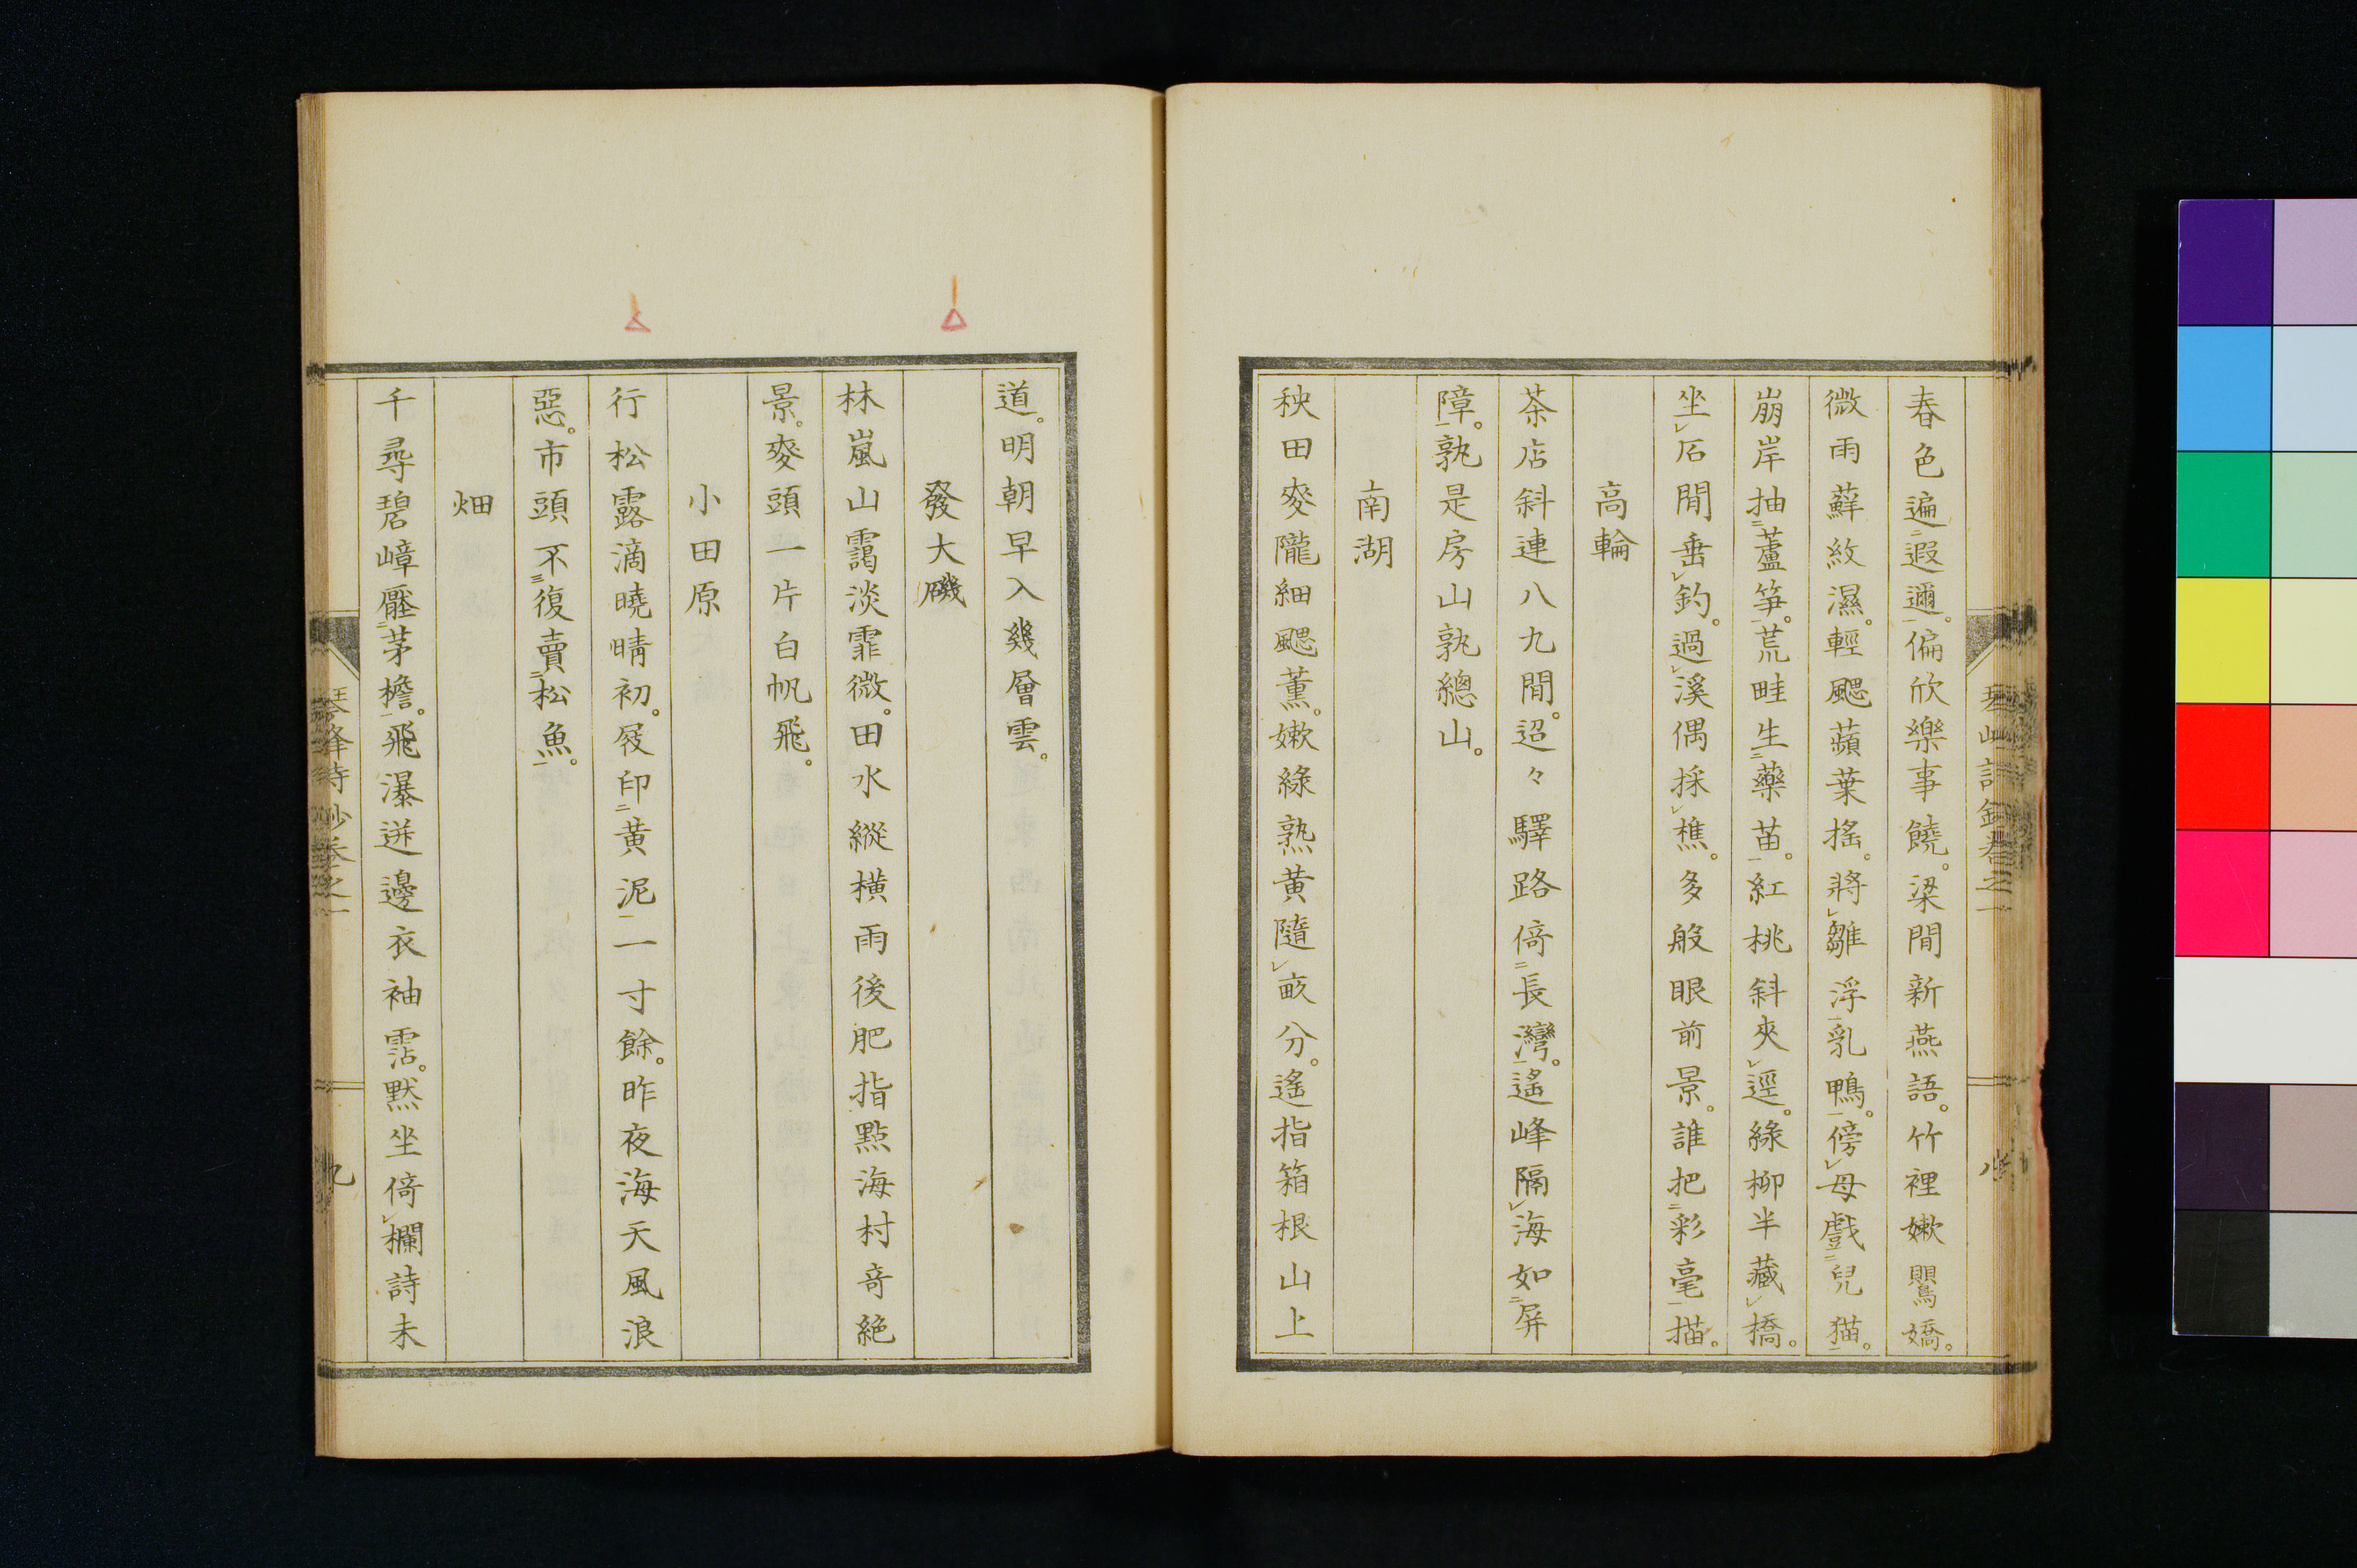 春色遍遐邇。偏欣樂事饒。梁間新燕語。竹裡嫩鸎嬌。
微雨蘚紋濕。輕颸蘋葉搖。將雛浮乳鴨。傍母戲兒猫。
崩岸抽蘆笋。荒畦生藥苗。紅桃斜夾逕。綠柳半藏橋。
坐石閒垂釣。過溪偶採樵。多般眼前景。誰把彩毫描。
高輪
茶店斜連八九間。迢々驛路倚長灣。遙峰隔海如屏
障。孰是房山孰總山。
南湖
秧田麥隴細颸薫。嫩綠熟黄隨畝分。遙指箱根山上
道。明朝早入幾層雲。
發大磯
林嵐山靄淡霏微。田水縱橫雨後肥指點海村奇絶
景。麥頭一片白帆飛。
小田原
行松露滴曉晴初。屐印黄泥一寸餘。昨夜海天風浪
惡。市頭不復賣松魚。
畑
千尋碧嶂壓茅檐。飛瀑迸邊衣袖霑。黙坐倚欄詩未
九